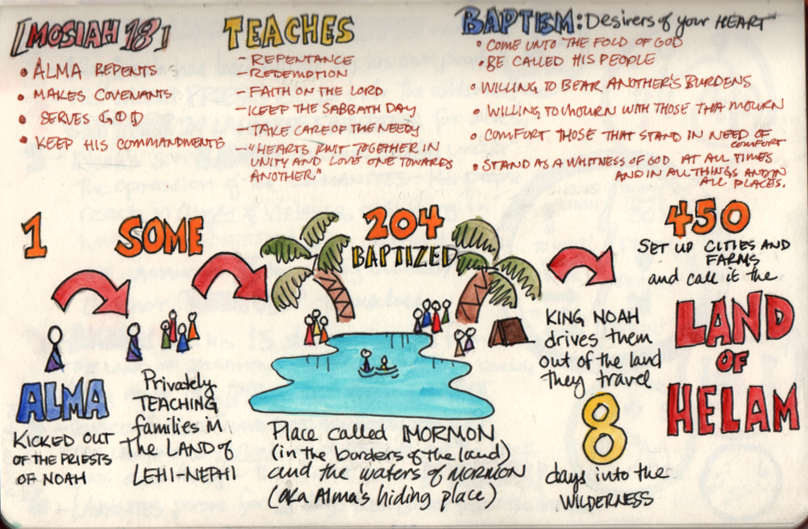 [MOSIAH 18]
• ALMA REPENTS
• MAKES COVENANTS
• SERVES GOD
• KEEP HIS COMMANDMENTS
TEACHES
– REPENTANCE
– REDEMPTION
– FAITH ON THE LORD
– KEEP THE SABBATH DAY
– TAKE CARE OF THE NEEDY
– "HEARTS KNIT TOGETHER IN
UNITY AND LOVE ONE TOWARDS
ANOTHER."
BAPTISM: Desirers of your HEART
• COME UNTO THE FOLD OF GOD
• BE CALLED HIS PEOPLE
• WILLING TO BEAR ANOTHER'S BURDENS
• WILLING TO MOURN WITH THOSE THA MOURN
• COMFORT THOSE THAT STAND IN NEED OF
COMFORT
• STAND AS A WHITNESS OF GOD AT ALL TIMES
AND IN ALL THINGS AND IN
ALL PLACES.
1
ALMA
KICKED OUT
OF THE PRIESTS
OF NOAH
SOME
Privately
TEACHING
families in
the LAND of
LEHI-NEPHI
204
BAPTIZED
Place called MORMON
(in the borders of the land)
and the waters of MORMON
(aka Alma's hiding place)
KING NOAH
drives them
out of the land
they travel
8
days into the
WILDERNESS
450
SET UP CITIES AND
FARMS
and call it the
LAND
OF
HELAM